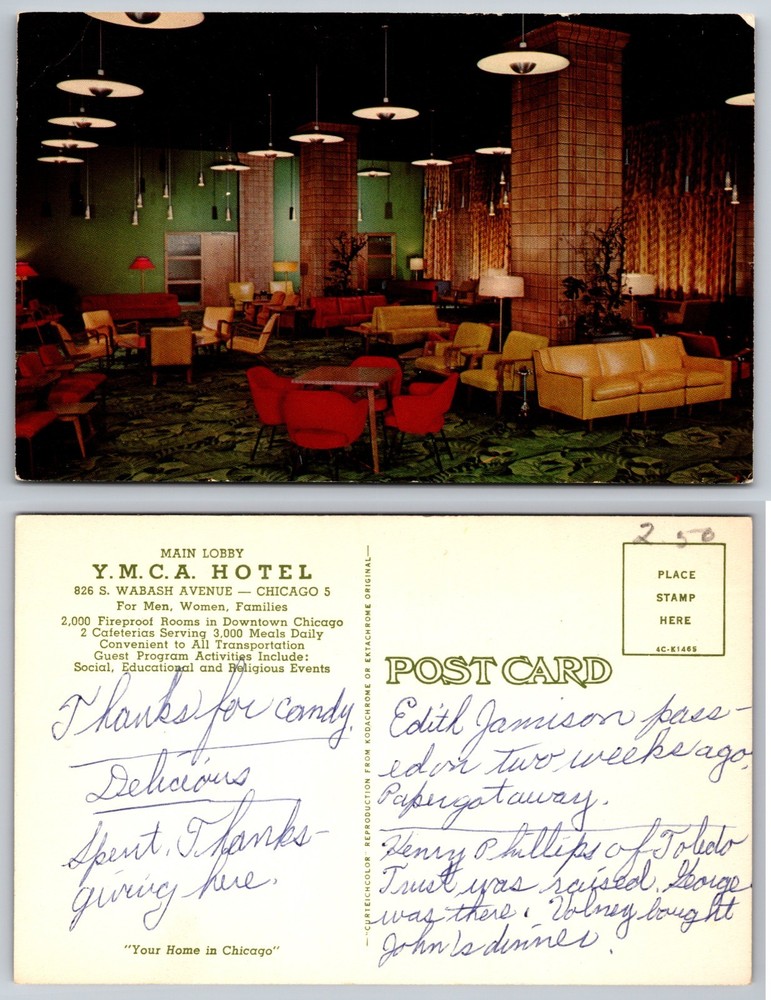 2.50
MAIN LOBBY
Y.M.C.A. HOTEL
826 S. WABASH AVENUE — CHICAGO 5
For Men, Women, Families
2,000 Fireproof Rooms in Downtown Chicago
2 Cafeterias Serving 3,000 Meals Daily
Convenient to All Transportation
Guest Program Activities Include:
Social, Educational and Religious Events
Thanks for candy.
Delicious
Spent. Thanks-
giving here.
"Your Home in Chicago"
—"CURTEICHCOLOR" REPRODUCTION FROM KODACHROME OR EKTACHROME ORIGINAL—
PLACE
STAMP
HERE
4C-K1465
POST CARD
Edith Jamison pass-
ed on two weeks ago.
Paper got away.
Henry Phillips of Toledo
Trust was raised. George
was there. Volney bought
John's dinner.